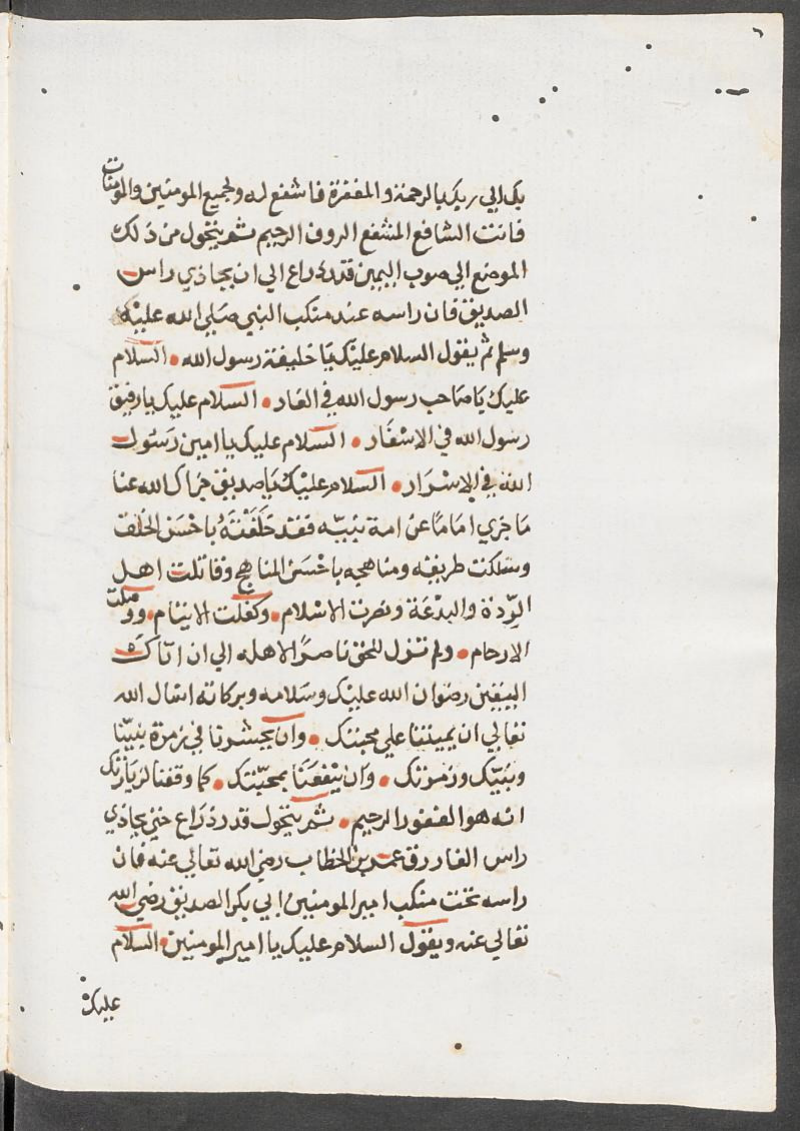 بك الي ربك بالرحمة والمغفرة فاشفع له ولجميع المومنين والمومنات
فانت الشافع المشفع الروف الرحيم ثم يتحول من ذلك
الموضع الي صوب اليمين قدر ذراع الي ان يحاذي راس
الصديق فان راسه عند منكب النبي صلي الله عليه
وسلم ثم يقول السلام عليك يا خليفة رسول الله • السلام
عليك يا صاحب رسول الله في الغار • السلام عليك يا رفيق
رسول الله في الاسفار • السلام عليك يا امين رسول
الله في الاسرار • السلام عليك يا صديق جزاك الله عنا
ما جزي اماما عن امة نبيه فقد خلفته باحسن الخلف
وسلكت طريقه ومناهجه باحسن المناهج وقاتلت اهل
الردة والبدعة ونصرت الاسلام • وكفلت الايتام • ووصلت
الارحام • ولم تزل للحق ناصرا لاهله الي ان اتاك
اليقين رضوان الله عليك وسلامه وبركاته اسال الله
تعالي ان يميتنا علي محبتك • وان يحشرنا في زمرة نبينا
ونبيك وزمرتك • وان ينفعنا بمحبتك • كما وفقنا لزيارتك
انه هو الغفور الرحيم • ثم يتحول قدر ذراع حتي يحاذي
راس الفاروق عمر بن الخطاب رضي الله تعالي عنه فان
راسه تحت منكب امير المومنين ابي بكر الصديق رضي الله
تعالي عنه ويقول السلام عليك يا امير المومنين • السلام
عليك